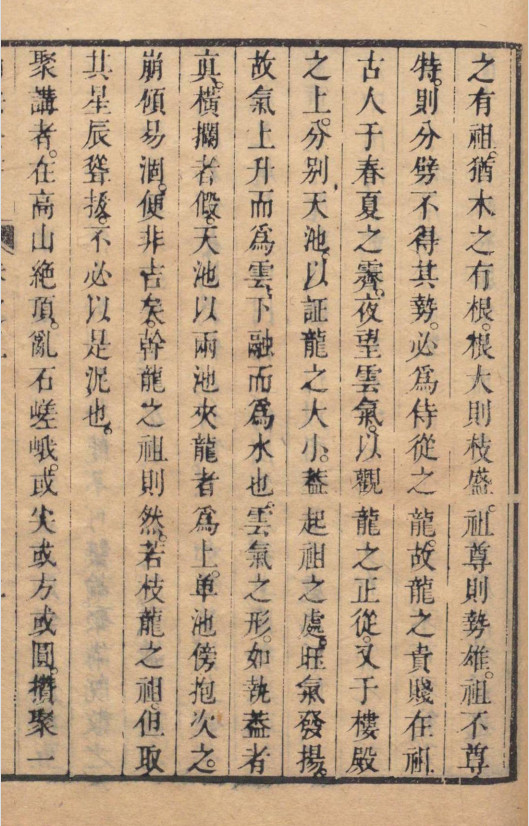 之有祖。猶木之有根。根大則枝盛。祖尊則勢雄。祖不尊
特。則分劈不得其勢。必爲侍從之龍。故龍之貴賤在祖。
古人于春夏之霽。夜望雲氣。以觀龍之正從。又于樓殿
之上。分別天池。以証龍之大小。葢起祖之處。旺氣發揚。
故氣上升而爲雲。下融而爲水也。雲氣之形。如執葢者
真。橫攔者假。天池以兩池夾龍者爲上。單池傍抱次之。
崩傾易涸。便非吉矣。幹龍之祖則然。若枝龍之祖。但取
其星辰聳拔。不必以是泥也。
聚講者。在高山絶頂。亂石嵯峨。或尖或方或圓。攢聚一